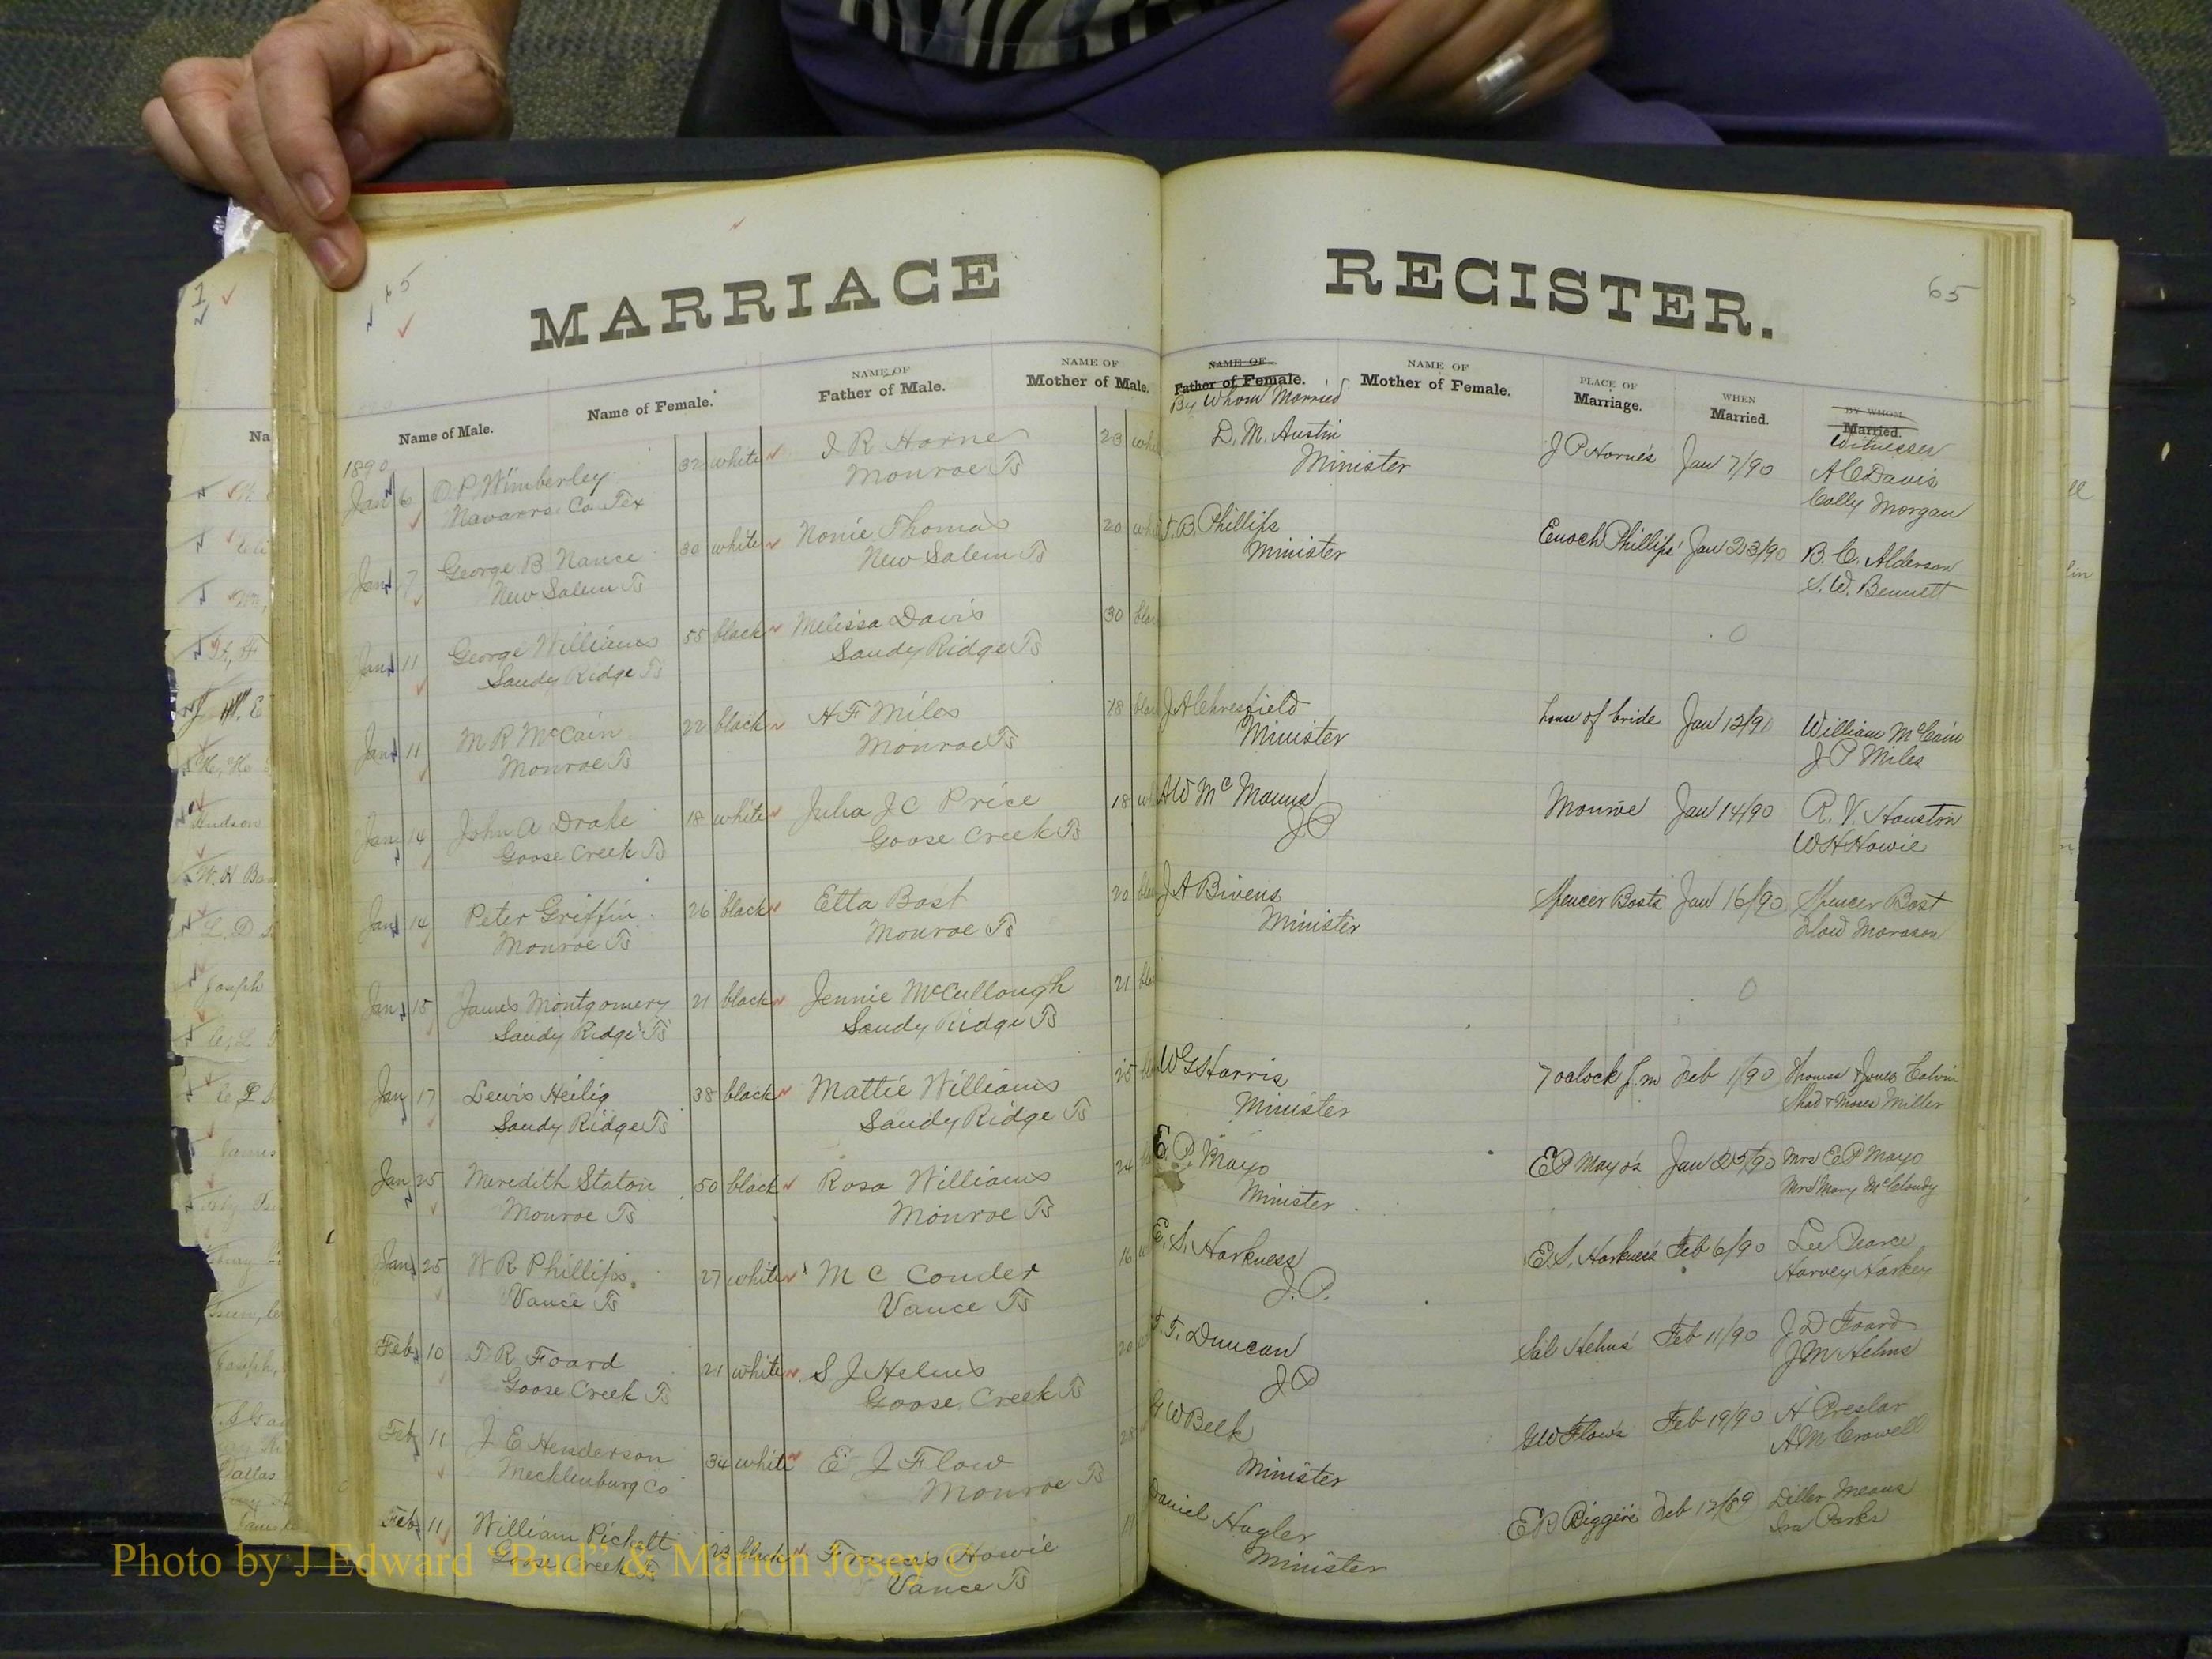 65
MARRIAGE
Name of Male.
Name of Female.
NAME OF
Father of Male.
NAME OF
Mother of Male.
1890
Jan 6 O. P. Wimberley 32 white J R Horne 23
Navarro Co Tex Monroe Ts
Jan 7 George B Nance 30 white Nonie Thomas 20
New Salem Ts New Salem Ts
Jan 11 George Williams 55 black Melissa Davis 30
Sandy Ridge Ts Sandy Ridge Ts
Jan 11 M R McCain 22 black H F Miles 18
Monroe Ts Monroe Ts
Jan 14 John A Drake 18 white Julia J C Price 18
Goose Creek Ts Goose Creek Ts
Jan 14 Peter Griffin 26 black Etta Bost 20
Monroe Ts Monroe Ts
Jan 15 James Montgomery 21 black Jennie McCullough 21
Sandy Ridge Ts Sandy Ridge Ts
Jan 17 Lewis Heilig 38 black Mattie Williams 25
Sandy Ridge Ts Sandy Ridge Ts
Jan 25 Meredith Staton 50 black Rosa Williams 24
Monroe Ts Monroe Ts
Jan 25 W R Phillips 27 white M C Conder 16
Vance Ts Vance Ts
Feb 10 T R Foard 21 white S J Helms 20
Goose Creek Ts Goose Creek Ts
Feb 11 J E Henderson 34 white E J Flow
Mecklenburg Co Monroe Ts
Feb 11 William Pickett 23 black Frances Howie
Goose Creek Ts Vance Ts
REGISTER.
65
NAME OF
Father of Female.
By Whom Married
NAME OF
Mother of Female.
PLACE OF
Marriage.
WHEN
Married.
BY WHOM
Married.
Witnesses
D. M. Austin J P Horne's Jan 7/90 A C Davis
Minister Colly Morgan
J. B. Phillips Enoch Phillips' Jan 23/90 B. C. Alderson
Minister S. W. Bennett
0
J A Chresfield house of bride Jan 12/90 William McCain
Minister J P Miles
A W McManus Monroe Jan 14/90 R. V. Houston
J P W H Howie
J A Bivens Spencer Bosts Jan 16/90 Spencer Bost
Minister
0
W G Harris 7 oclock Feb 1/90 Thomas Jones Calvin
Minister Shad & Moses Miller
E. P. Mayo E P Mayo's Jan 25/90 Mrs E P Mayo
Minister Mrs Mary
E. S. Harkness E. S. Harkness Feb 6/90 Lee Pearce
J. P. Harvey Harkey
F. Duncan Feb 11/90 J D Foard
J P J M Helms
G W Belk G W Flow's Feb 19/90 H Preslar
Minister A M Crowell
Daniel Hagler Feb 12/89 Diller Means
Minister Ira Parks
Photo by J Edward "Bud" & Marion Josey ©